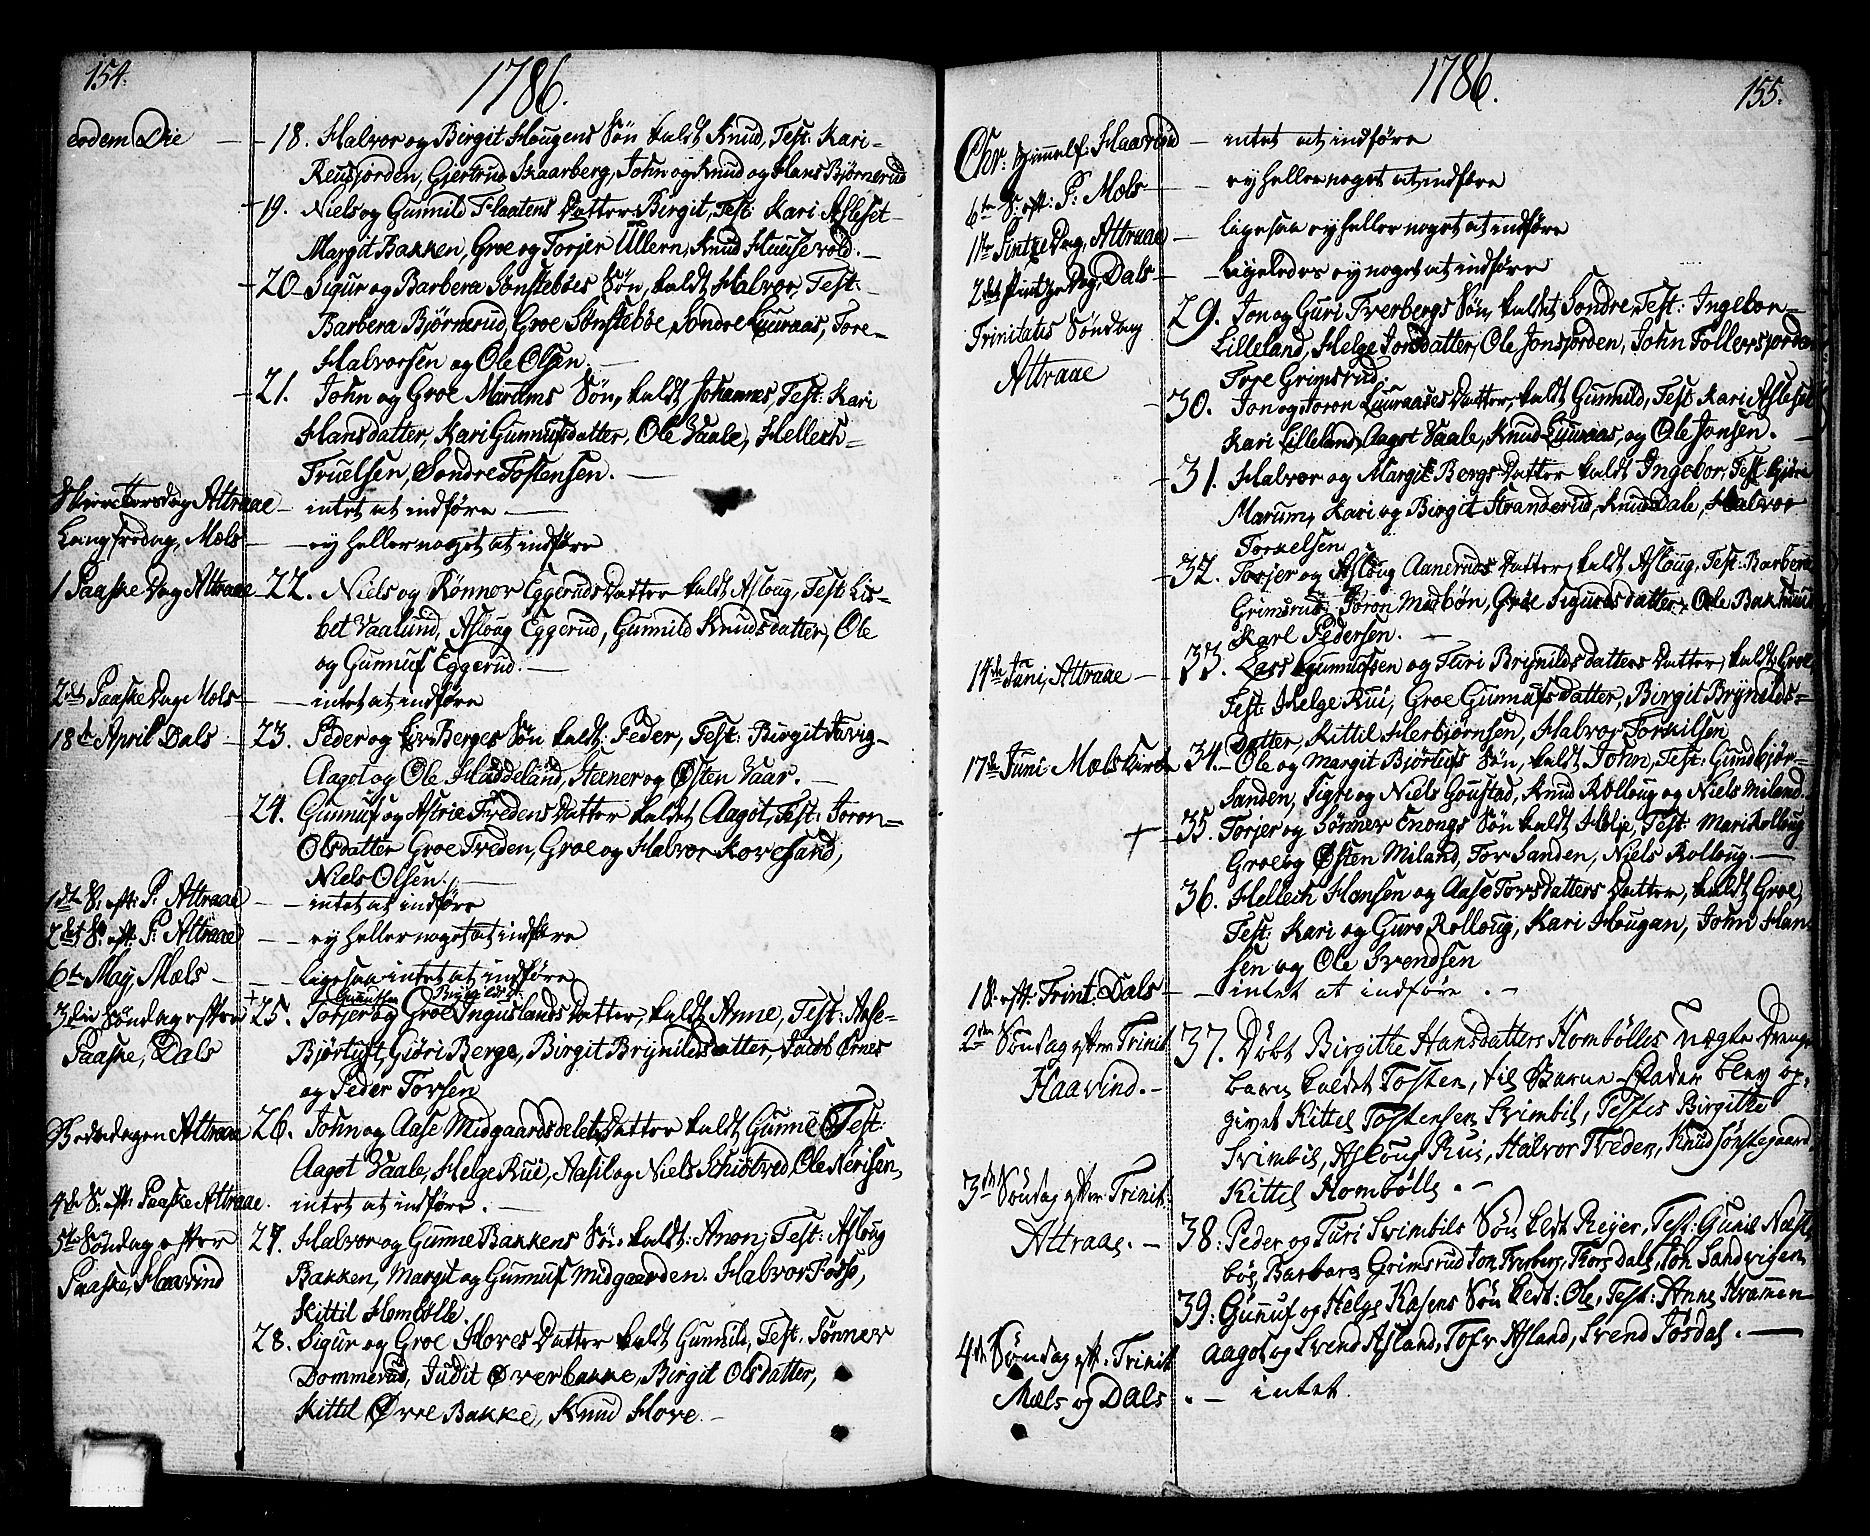 154.
1786.
eodem Die — 18. Halvor og Birgit Hougens Søn kaldt Knud, Test: Kari
Reusjorden, Gjertrud Skaarberg, John og Knud og Hans Bjørnerud
19. Niels og Gunnild Flaatens Datter Birgit, Test: Kari Asleset
Margit Bakken, Groe og Torjer Ullern, Knud Hausevold. —
20 Sigur og Barbera Sønstebøes Søn, kaldt Halvor, Test:
Barbera Bjørnerud, Groe Sønstebøe, Sondre Luuraas, Tore
Halvorsen og Ole Olsen. —
21. John og Groe Marums Søn, kaldt Johannes, Test: Kari
Hansdatter, Kari Gunnufsdatter, Ole Vaale, Hellech
Truelsen, Sondre Tostensen. —
Skiertorsdag Attraae — intet at indføre —
Langfredag, Mæls — ey heller noget at indføre
1 Paaske Dag Attraae 22. Niels og Rønnov Eggeruds Datter kaldt Asloug, Test: Lis-
bet Vaalund, Asloug Eggerud, Gunnild Knudsdatter, Ole
og Gunnuf Eggerud. —
2den Paaske Dag Mæls — intet at indføre
18de April Dals — 23. Peder og Liv Berges Søn kaldt: Peder, Test: Birgit
Aagot og Ole Haddeland, Steener og Østen Vaar. —
24. Gunnuf og Astrie Tvedens Datter kaldet Aagot, Test: Joron
Olsdatter Groe Tveden, Groe og Halvor Kovesand,
Niels Olsen. —
1ste S. eft: P. Attraae — intet at indføre
2den S. eft: P: Attraae — ey heller noget at indføre
6te May, Mæls — ligesaa intet at indføre
3die Søndag efter + 25. Torjer Gunnufsen og Groe Ingulslands Datter, kaldt Anne, Test: Aase
Paaske, Dals Bjørtuft, Giøri Berge, Birgit Brynildsdatter, Jacob Ørnes
og Peder Torsen
Bededagen Attraae 26. John og Aase Midgaardsdelets Datter kaldt Gunne Test:
Aagot Vaale, Helge Rui, Aasil og Niels Schiøtved, Ole Nerisen,
4de S. eft: Paaske Attraae. intet at indføre. —
5te Søndag efter 27. Halvor og Gunne Bakkens Søn kaldt: Anon; Test: Asloug
Paaske, Haavind Bakken, Margit og Gunnuf Midgaarden. Halvor Fosse,
Kittil Hombølle.
28. Sigur og Groe Hoves Datter kaldt Gunnild, Test: Sønnev
Dommerud, Judit Øverbakke, Birgit Olsdatter,
Kittil Øvre Bakke, Knud Hove. —
1786.
155.
Chr: Himmelf: Haavind — intet at indføre
6te S. eft: P: Mæls — ey heller noget at indføre
1ste Pintze Dag, Attraae — ligesaa ey heller noget at indføre
2den Pintze Dag, Dals — ligeledes ey noget at indføre
Trinitatis Søndag 29. Jon og Guri Tverbergs Søn, kaldet Sondre, Test: Ingebor
Attraae Lilleland, Helge Jonsdatter, Ole Jonsjorden, John Follersjorden
Tore Grimsrud
30. Jon og Joron Luuraases Datter, kaldt Gunnild, Test: Kari Asleset
Kari Lilleland, Aagot Vaale, Knud Luuraas, og Ole Jonsen. —
31. Halvor og Margit Bergs Datter kaldt Ingebor, Test: Giøre
Marum, Kari og Birgit Stranderud, Knud Dale, Halvor
Torkelsen
32. Torjer og Asloug Aaneruds Datter, kaldt Asloug, Test: Barbera
Grimsrud, Joron Medbøn, Groe Sigursdatter, Ole Bakhuus
Karl Pedersen. —
14de Juni, Attraae — 33. Lars Gunnufsen og Turi Brynildsdatters Datter, kaldt Groe
Test: Helge Rui, Groe Gunnufsdatter, Birgit Brynilds-
datter, Kittil Herbjørnsen, Halvor Torkilsen
17de Juni Mæls Kirke 34. Ole og Margit Bjørtufs Søn, kaldt John, Test: Gundbjør
Sanden, Sigri og Niels Goustad, Knud Rolloug og Niels Miland.
+ 35. Torjer og Sønnev Enongs Søn kaldt Helje, Test: Mari Rolloug
Groe og Østen Miland, Tor Sanden, Niels Rolloug. —
36. Hellech Hansen og Aase Torsdatters Datter, kaldt Groe,
Test: Kari og Guro Rolloug, Kari Hougan, John Han-
sen og Ole Svendsen
1 S. eft: Trint. Dals — intet at indføre. —
2den Søndag efter Trinit. 37. Døbt Birgithe Hansdatters Hombølles uægte Drenge
Haavind. — barn kaldet Tosten, til Barne-Fader blev op-
givet Kittel Tostensen Svimbil, Testes Birgithe
Svimbil, Asloug Rui, Halvor Tveden, Knud Sønstegaard
Kittil Hombølle. —
3die Søndag efter Trinit: 38: Peder og Turi Svimbils Søn kaldt Reyer, Test: Gunil
Attraae. — Barbara Grimsrud Jon Tverberg, Thor Dale, Jon Sandvigen
39: Gunnuf og Helge Kasens Søn kaldt: Ole, Test: Anne Hvammen
Aagot og Svend Asland, Tosev Asland, Svend Jøsdal. —
4de Søndag eft. Trinit
Mæls og Dals . — intet.